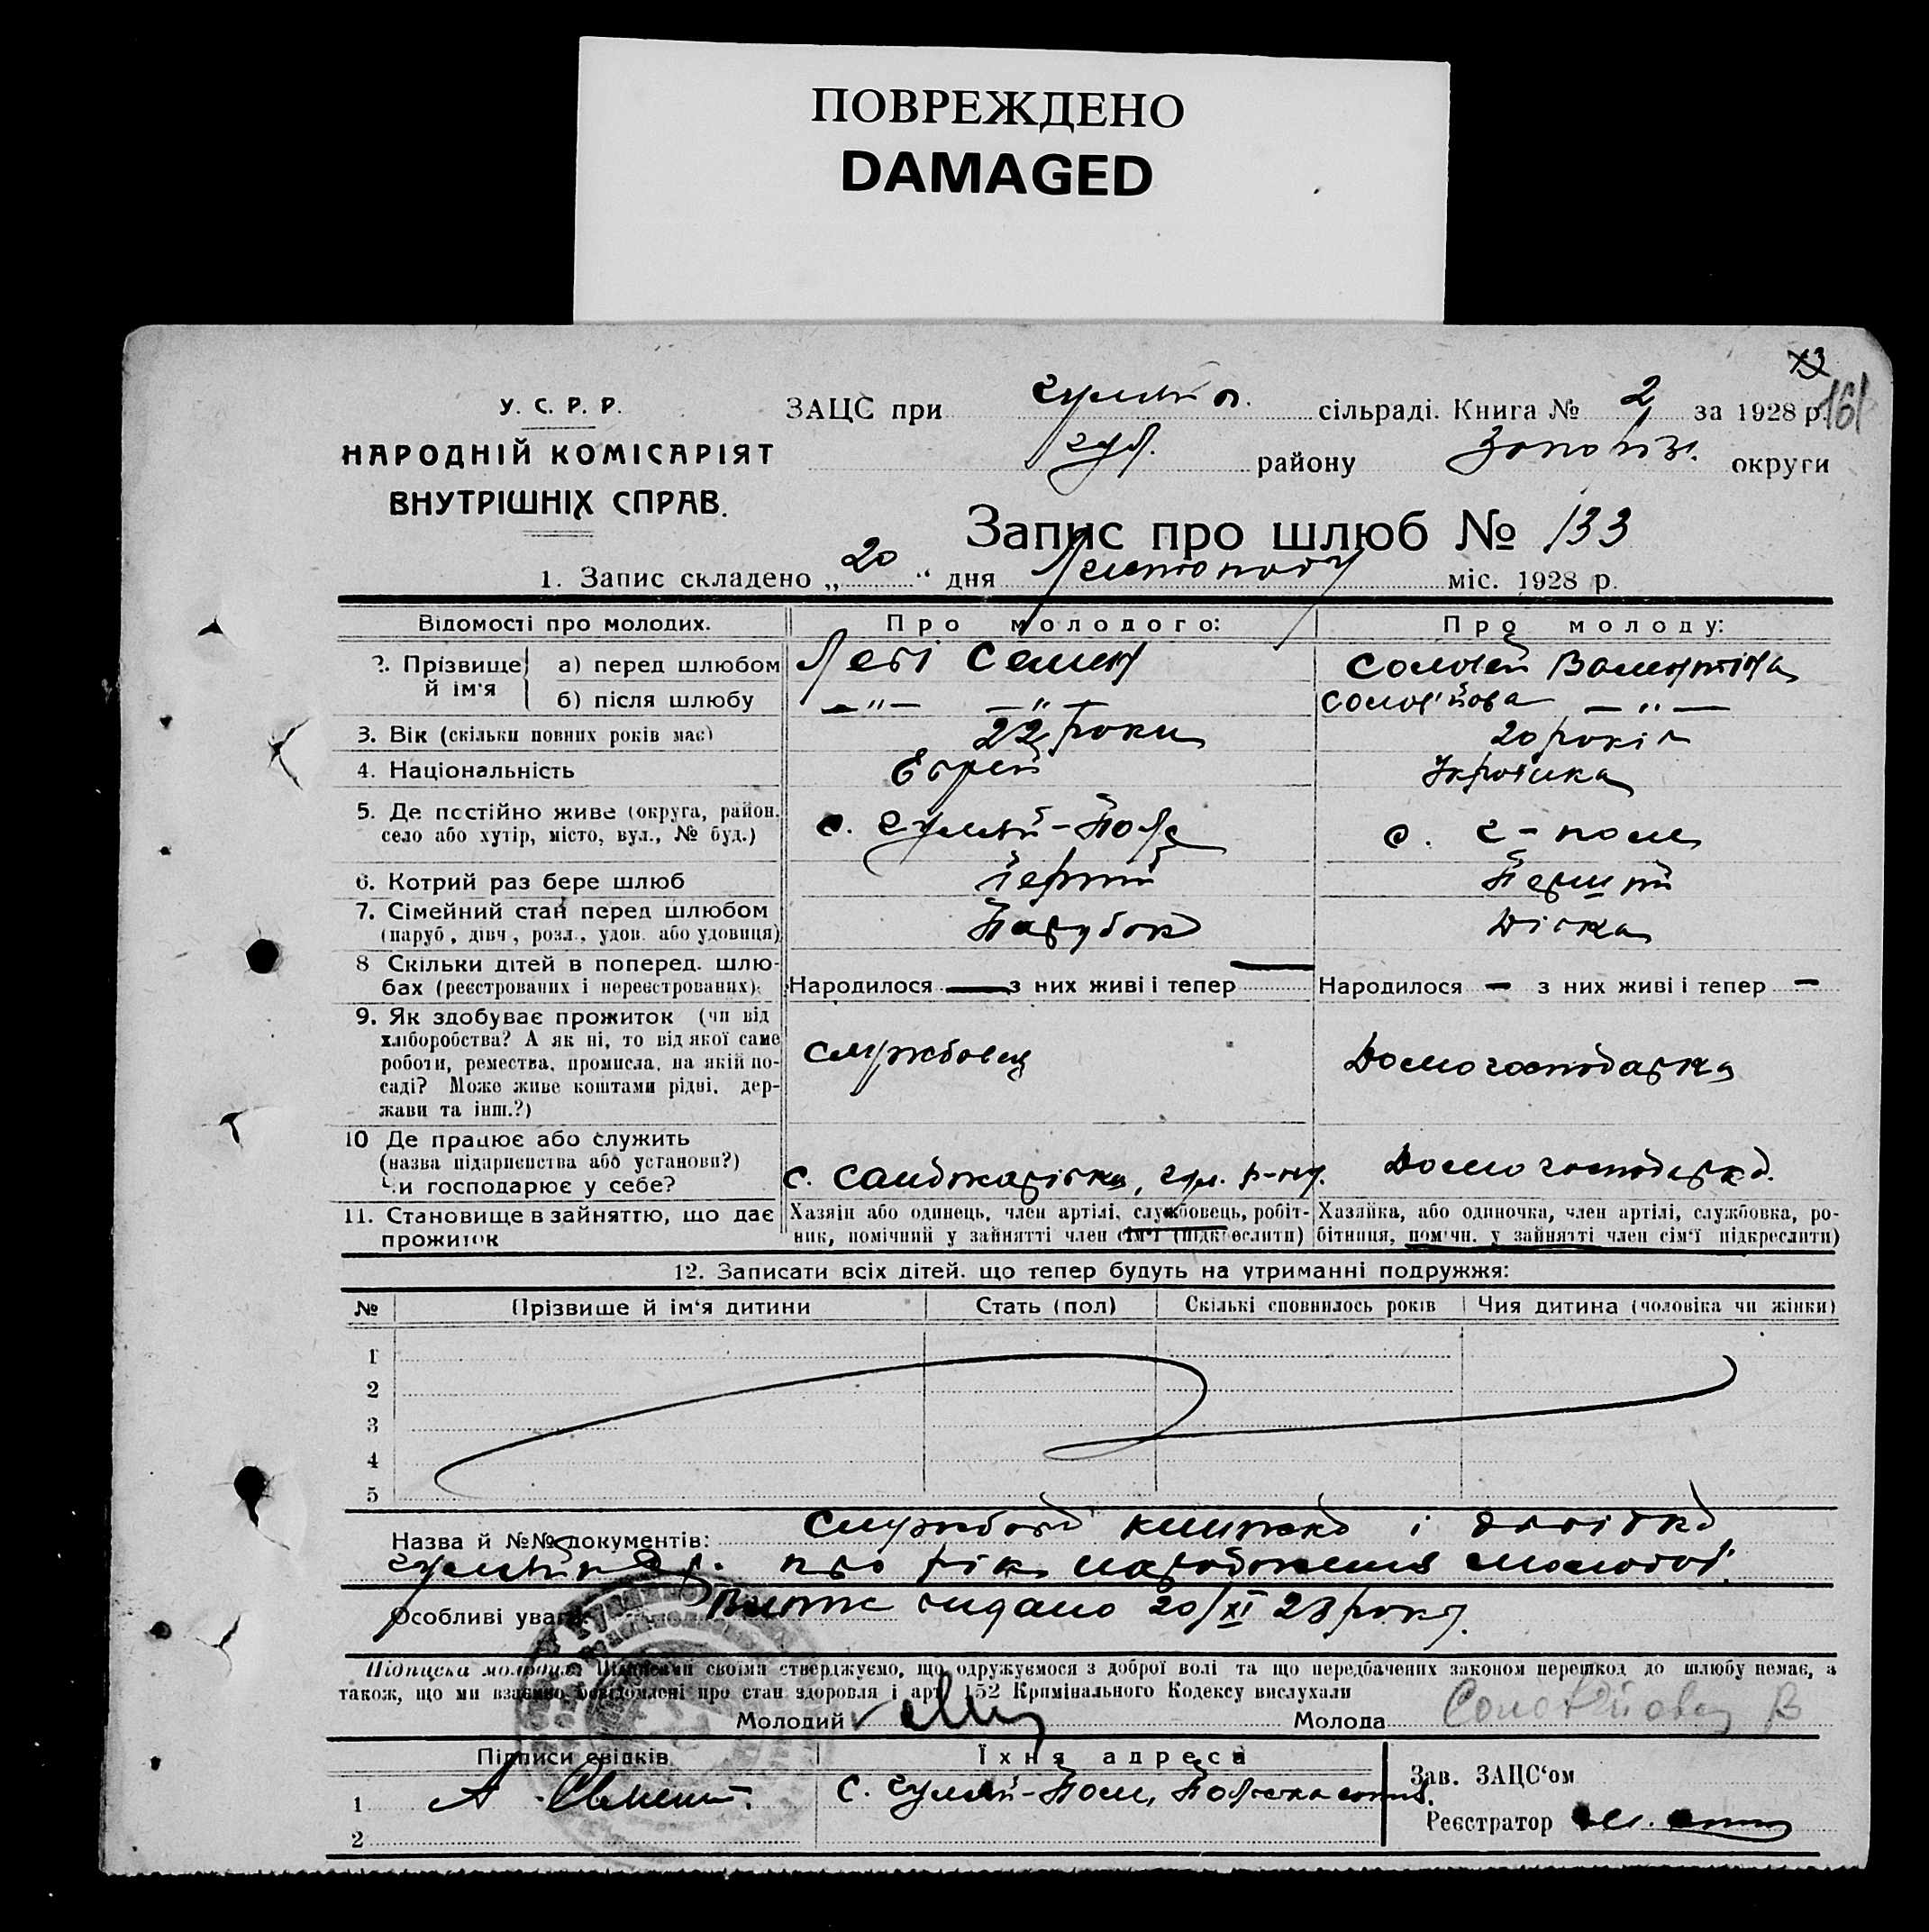 ПОВРЕЖДЕНО
DAMAGED
161
У. С. Р. Р.
НАРОДНІЙ КОМІСАРІЯТ
ВНУТРІШНІХ СПРАВ.
ЗАЦС при гуляй п. сільраді. Книга № 2 за 1928 р.
гул. району Запоріз. округи
Запис про шлюб № 133
1. Запис складено „20“ дня Листопаду міс. 1928 р.
Відомості про молодих. Про молодого: Про молоду:
2. Прізвище й ім‘я а) перед шлюбом Леві Семен Соловей Валентіна
б) після шлюбу —"— —"— Солов'йова —"—
3. Вік (скільки повних років має) 22 роки 20 років
4. Національність Еврей Українка
5. Де постійно живе (округа, район, село або хутір, місто, вул., № буд.) с. Гуляй-Поле с. Г-поле
6. Котрий раз бере шлюб Перший Перший
7. Сімейний стан перед шлюбом (паруб., дівч., розл., удов. або удовиця) Парубок Дівка
8 Скільки дітей в поперед. шлюбах (реєстрованих і нереєстрованих). Народилося — з них живі і тепер — Народилося — з них живі і тепер —
9. Як здобуває прожиток (чи від хліборобства? А як ні, то від якої саме роботи, ремества, промисла, на якій посаді? Може живе коштами рідні, держави та інш.?) службовец Домогосподарка
10 Де працює або служить (назва підприєнства або установи?) Чи господарює у себе? с. Санджарівка, гул. р-ну. Домогосподарка.
11. Становище в зайняттю, що дає прожиток Хазяїн або одинець, член артілі, службовець, робітник, помічний у зайнятті член сім‘ї (підкреслити) Хазяйка, або одиночка, член артілі, службовка, робітниця, помічн. у зайнятті член сім‘ї підкреслити)
12. Записати всіх дітей, що тепер будуть на утриманні подружжя:
№ Прізвище й ім‘я дитини Стать (пол) Скількі сповнилось років Чия дитина (чоловіка чи жінки)
1
2
3
4
5
Назва й №№ документів: Службова книжка і довідка
про рік народження молодої.
Особливі уваги Витяг видано 20/XI 28 року.
Підписка молодих: Підписами своїми стверджуємо, що одружуємося з доброї волі та що передбачених законом перешкод до шлюбу немає, а
також, що ми взаємно повідомлені про стан здоровля і арт. 152 Кримінального Кодексу вислухали
Молодий Молода Соловйова В
Підписи свідків Їхня адреса Зав. ЗАЦС‘ом
1 с. Гуляй-Поле,
Реєстратор
2